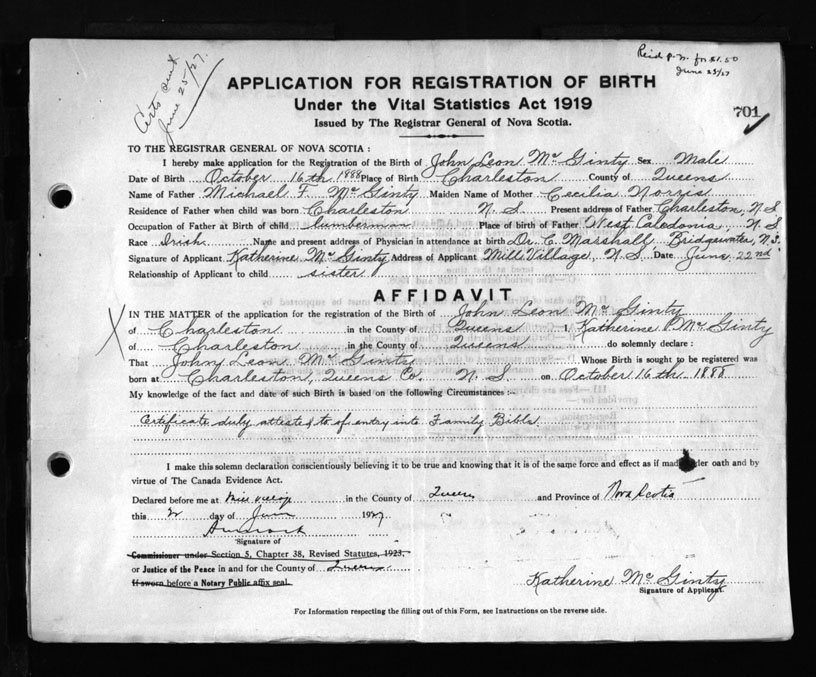 June 25/27.
for $1.50
June 25/27
APPLICATION FOR REGISTRATION OF BIRTH
Under the Vital Statistics Act 1919
701
Issued by The Registrar General of Nova Scotia.
TO THE REGISTRAR GENERAL OF NOVA SCOTIA :
I hereby make application for the Registration of the Birth of John Leon Mc Ginty Sex Male
Date of Birth October 16th 1888 Place of Birth Charleston County of Queens
Name of Father Michael F. Mc Ginty Maiden Name of Mother Cecilia Norris
Residence of Father when child was born Charleston N. S. Present address of Father Charleston, N.S
Occupation of Father at Birth of child lumberman Place of birth of Father West Caledonia, N. S
Race Irish Name and present address of Physician in attendance at birth Dr. C. Marshall Bridgewater, N.S.
Signature of Applicant Katherine Mc Ginty Address of Applicant Mill Village, N. S. Date June 22nd
Relationship of Applicant to child sister
AFFIDAVIT
IN THE MATTER of the application for the registration of the Birth of John Leon Mc Ginty
of Charleston in the County of Queens I, Katherine Mc Ginty
of Charleston in the County of Queens do solemnly declare :
That John Leon Mc Ginty Whose Birth is sought to be registered was
born at Charleston, Queens Co. N. S. on October 16th 1888
My knowledge of the fact and date of such Birth is based on the following Circumstances :-
Certificate duly attested to of entry into Family Bible
I make this solemn declaration conscientiously believing it to be true and knowing that it is of the same force and effect as if made under oath and by
virtue of The Canada Evidence Act.
Declared before me at Mill Village in the County of Queens and Province of Nova Scotia
this day of June 1927
Signature of
Commissioner under Section 5, Chapter 38, Revised Statutes, 1923.
or Justice of the Peace in and for the County of Queens
If sworn before a Notary Public affix seal.
Katherine Mc Ginty
Signature of Applicant.
For Information respecting the filling out of this Form, see Instructions on the reverse side.